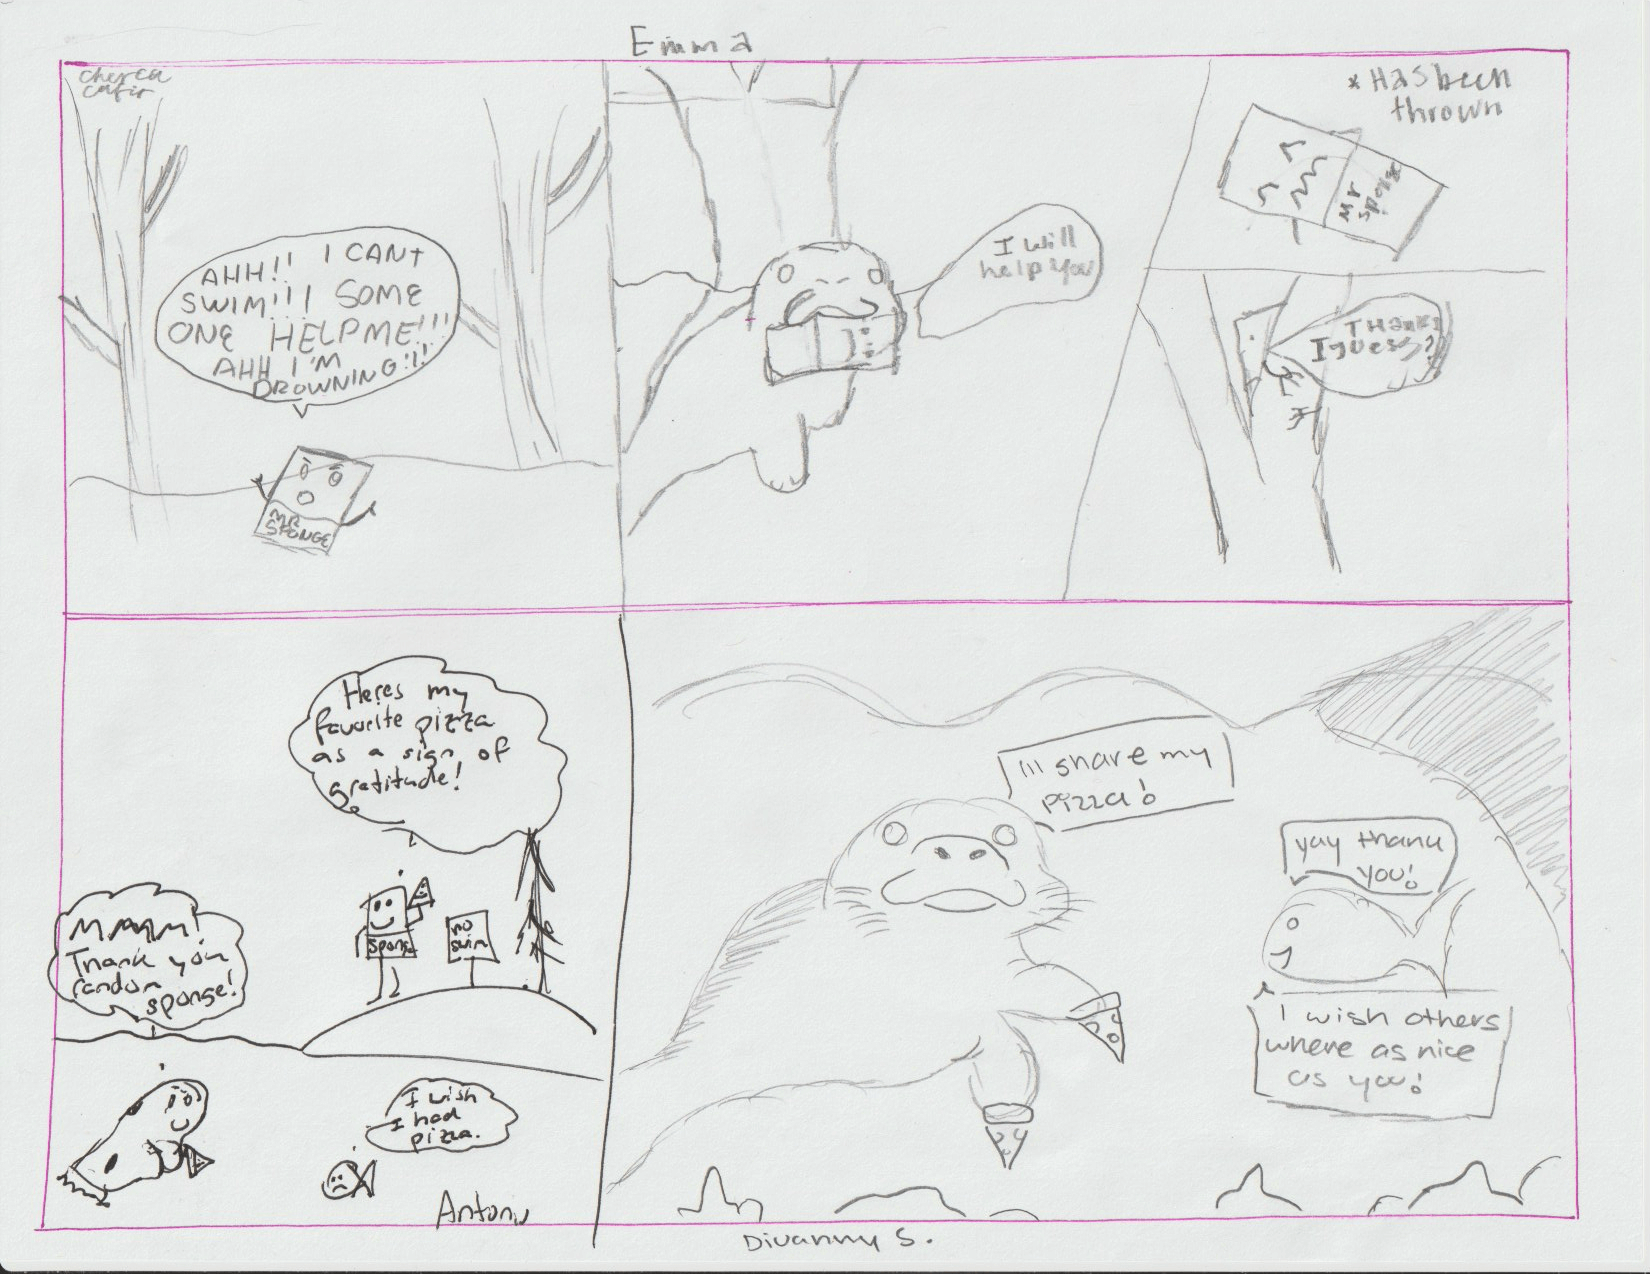 Emma
AHH!! I CANT
SWIM!!! SOME
ONE HELP ME!!!
AHH I'M
DROWNING!!!
MR
SPONGE
I will
help you
* Has been
thrown
Mr
sponge
THanks
I guess?
Heres my
favorite pizza
as a sign of
gratitude!
Sponge
no
swim
Mmmm!
Thank you
random
sponge!
I wish
I had
pizza.
Antonio
Ill share my
pizza!
yay thank
you!
I wish others
where as nice
as you!
Divanny S.